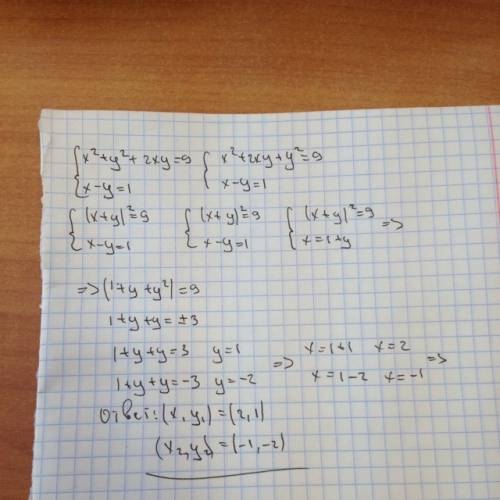 {x²+y²+2xy=9 {x²+2xy+y²=9
x-y=1 x-y=1
{(x+y)²=9 {(x+y)²=9 {(x+y)²=9 =>
x-y=1 x-y=1 x=1+y
=> (1+y+y²)=9
1+y+y=±3
1+y+y=3 y=1 => x=1+1 x=2 =>
1+y+y=-3 y=-2 x=1-2 x=-1
Ответ: (x, y₁)=(2,1)
(x₂,y₂)=(-1,-2)